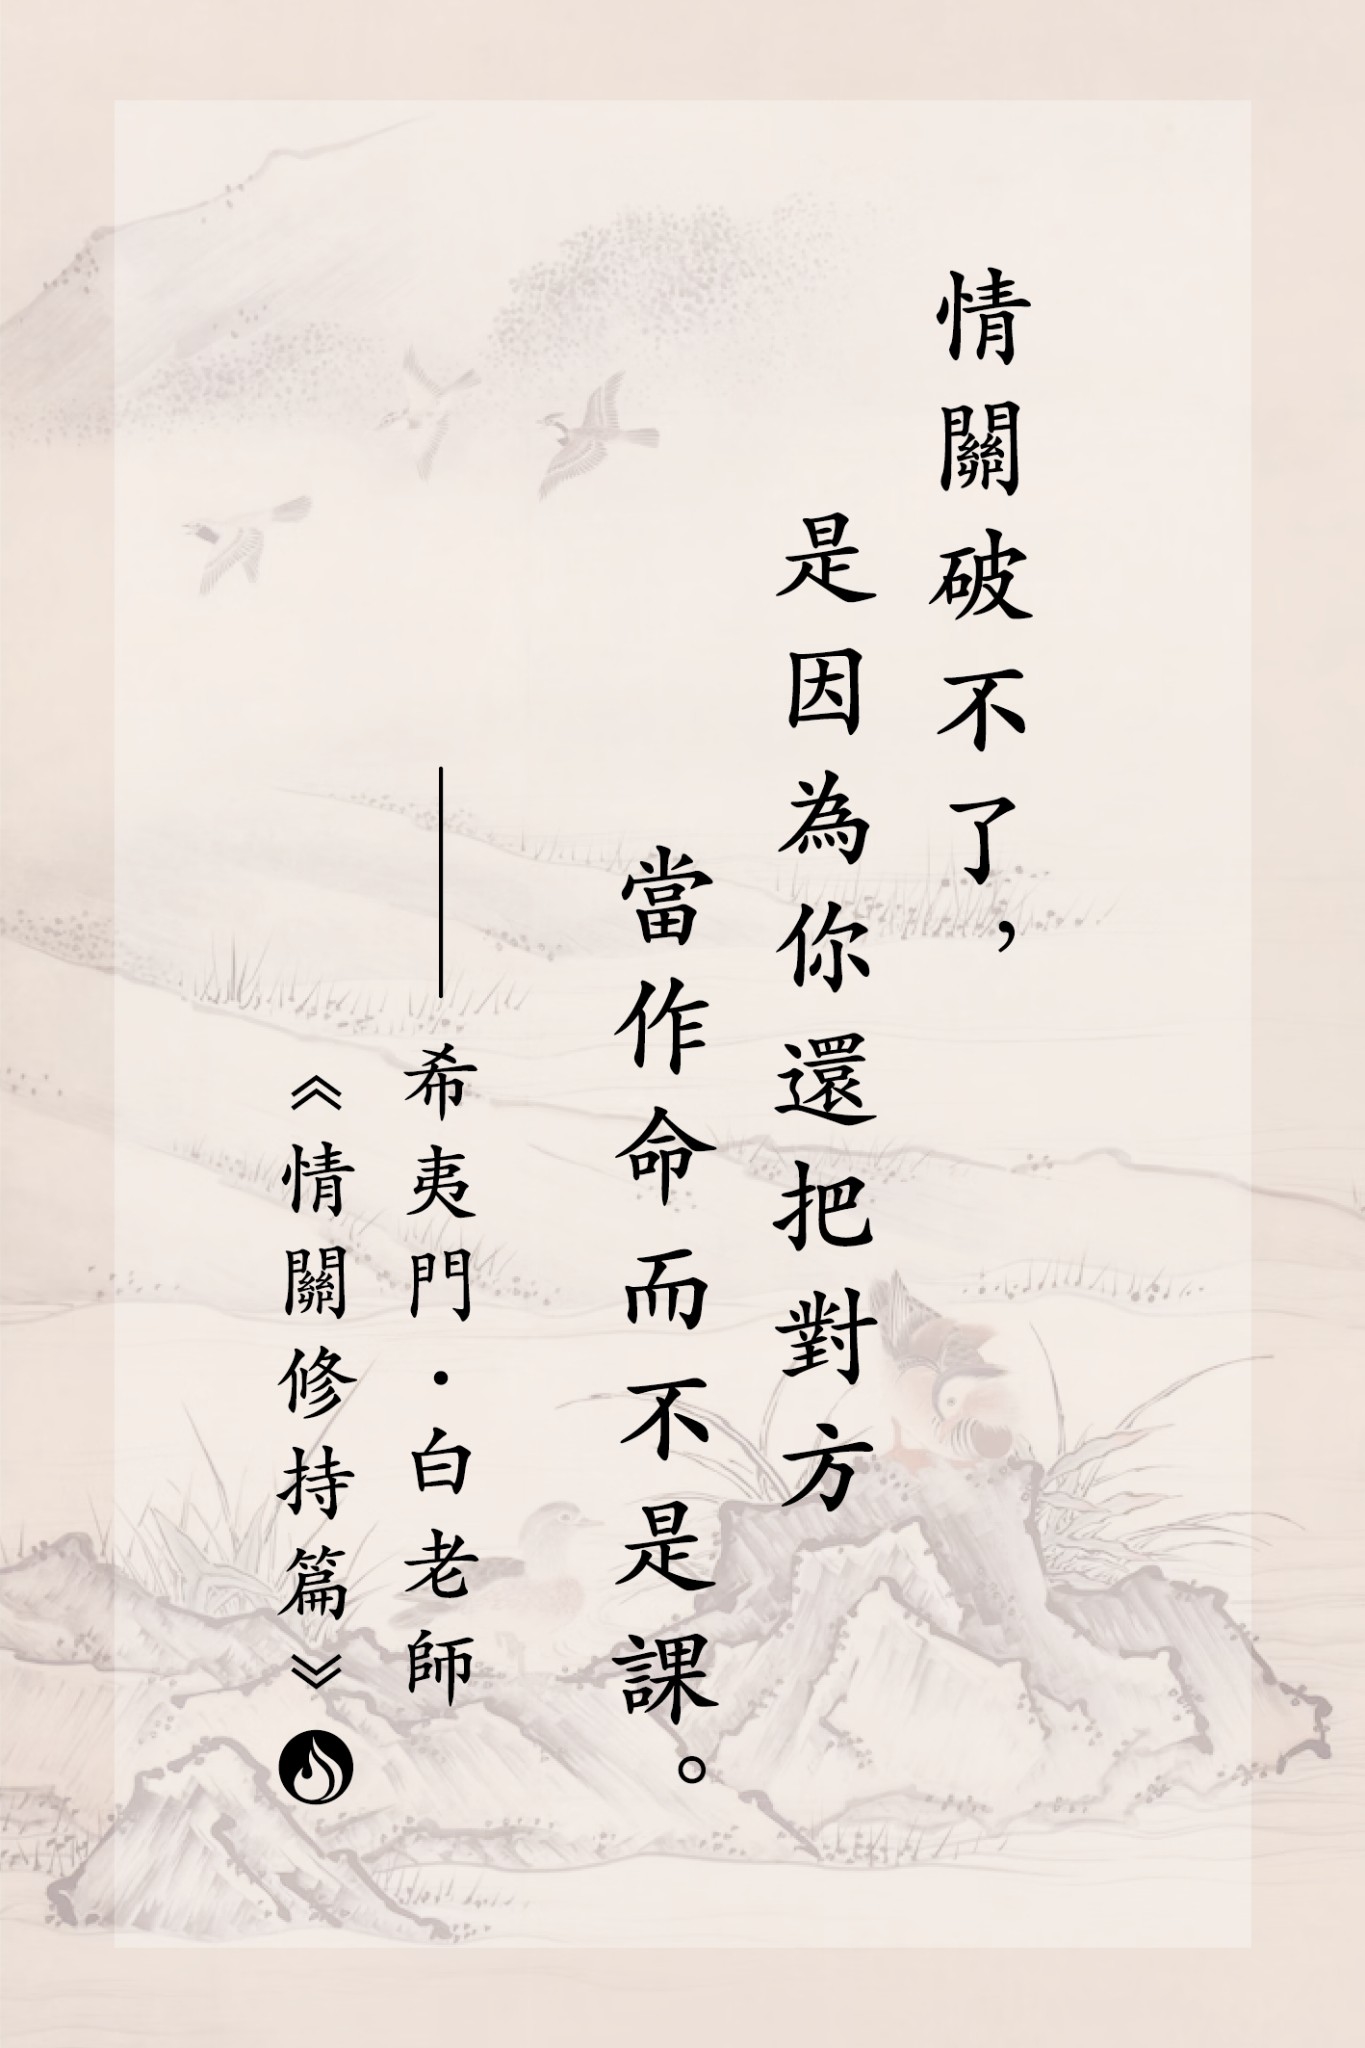 情關破不了，
是因為你還把對方
當作命而不是課。
——希夷門·白老師
《情關修持篇》